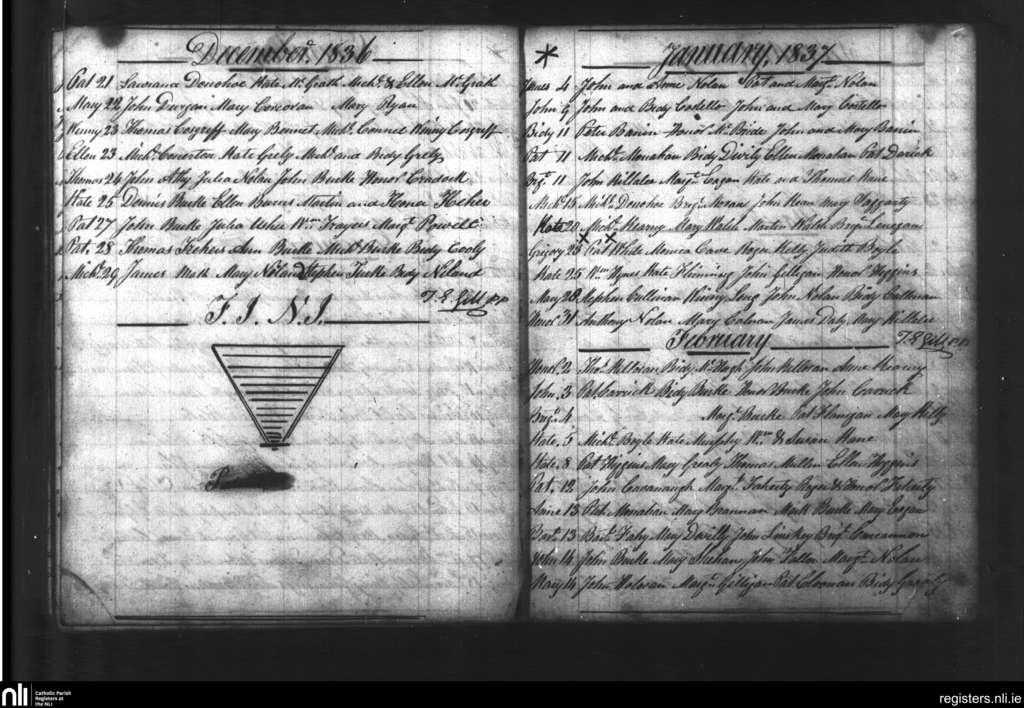 December 1836
Pat 21 Donohoe Kate McGrath Michl & Ellen McGrath
Mary 22 John Durgan Mary Corcoran Mary Ryan
Winny 23 Thomas Cosgriff Mary Bennet Michl Connel Winny Cosgriff
Ellen 23 Michl Kate Grely Michl and Bidy Grely
Thomas 24 John Atty Julia Nolan John Burke Honor Cradock
Kate 25 Dennis Burke Ellen Martin and Honor
Pat 27 John Burke Julia Usher Wm Frayer Margt Powell
Pat. 28 Thomas Ann Burke Michl Burke Bidy Cooly
Michl 29 James Mary Noland Stephen Burke Bidy Niland
T. E. Gill pp
F. I. N. I.
* January, 1837
James 4 John and Anne Nolan Pat and Margt Nolan
John 6 John and Bidy Costello John and Mary Costello
Bidy 11 Peter Honor McBride John and Mary
Pat 11 Michl Monahan Bidy Divily Ellen Monahan Pat
Brgt 11 John Killalea Margt Eagan Kate and Thomas Kane
Michl 15 Michl Donohoe Brigt John Mary Flaggarty
Kate 22 Michl Kearny Mary Walsh Martin Walsh Brigt
Grigory 23 Pat Wade Monica Cane Roger Kelly Judith Boyle
Kate 25 Wm Hynes Kate Fleming John Gilligan Honor Higgins
Mary 28 Stephen Cullinan Winny Long John Nolan Bidy Cullinan
Honor 31 Anthony Nolan Mary Colman James Daly Mary Killalea
February
T E Gill pp
Honor 2 Thos Killoran Bidy McHugh John Killoran Anne Kearny
John. 3 Pat Carrick Bidy Burke Honor Burke John Carrick
Brigt 4 Margt Burke Pat Flanigan Mary Kelly
Kate. 5 Michl Boyle Kate Murphy Wm & Susan Kane
Kate 8 Pat Higgins Mary Grealy Thomas Mullin Ellen Higgins
Pat. 12 John Cavanaugh Margt Faherty Roger & Honor Faherty
Anne 13 Patk Monahan Mary Brannan Matt Burke Mary Eagan
Bartw 13 Bartw Fahy Mary Divilly John Linskey Brigt Concannon
John 14 John Burke Mary Skehan John Fallon Margt Nolan
Mary 14 John Holoran Margt Gilligan Pat Bidy Garaty
nli
Catholic Parish
Registers at
the NLI
registers.nli.ie